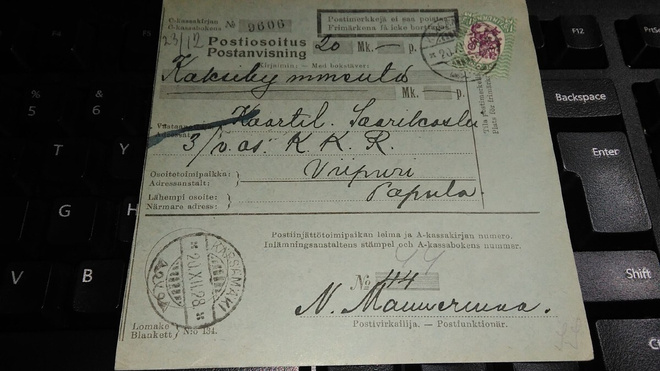 C-kassakirjan
C-kassabokens № 9606
Postimerkkejä ei saa poistaa.
Frimärkena få icke borttagas.
23/12 Postiosoitus
Postanvisning 20 Mk. — p.
Kirjaimin: — Med bokstäver:
Kaksikymmentä
Mk. — p.
Kaartil. Saarikoski
3/v. as. K. K. R.
Osoitetoimipaikka:
Adressanstalt: Viipuri
Lähempi osoite:
Närmare adress: Papula.
Postiinjättötoimipaikan leima ja A-kassakirjan numero.
Inlämningsanstaltens stämpel och A-kassabokens nummer.
20.XII.28
44
№ 44
N. Mannermaa.
Postivirkailija. — Postfunktionär.
Lomake
Blankett N:o 134.
%
5
6
T
G
H
V
B
F12
PrtSc
Backspace
Enter
Shift
Ctrl